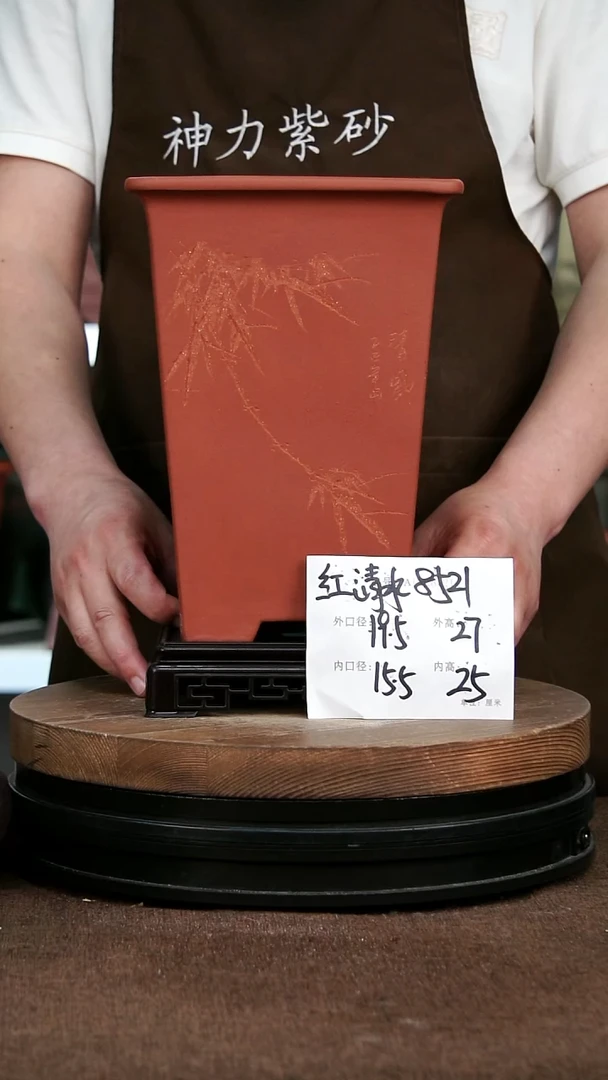 神力紫砂
清风
红清水 8521
外口径: 19.5 外高: 27
内口径: 15.5 内高: 25
单位: 厘米